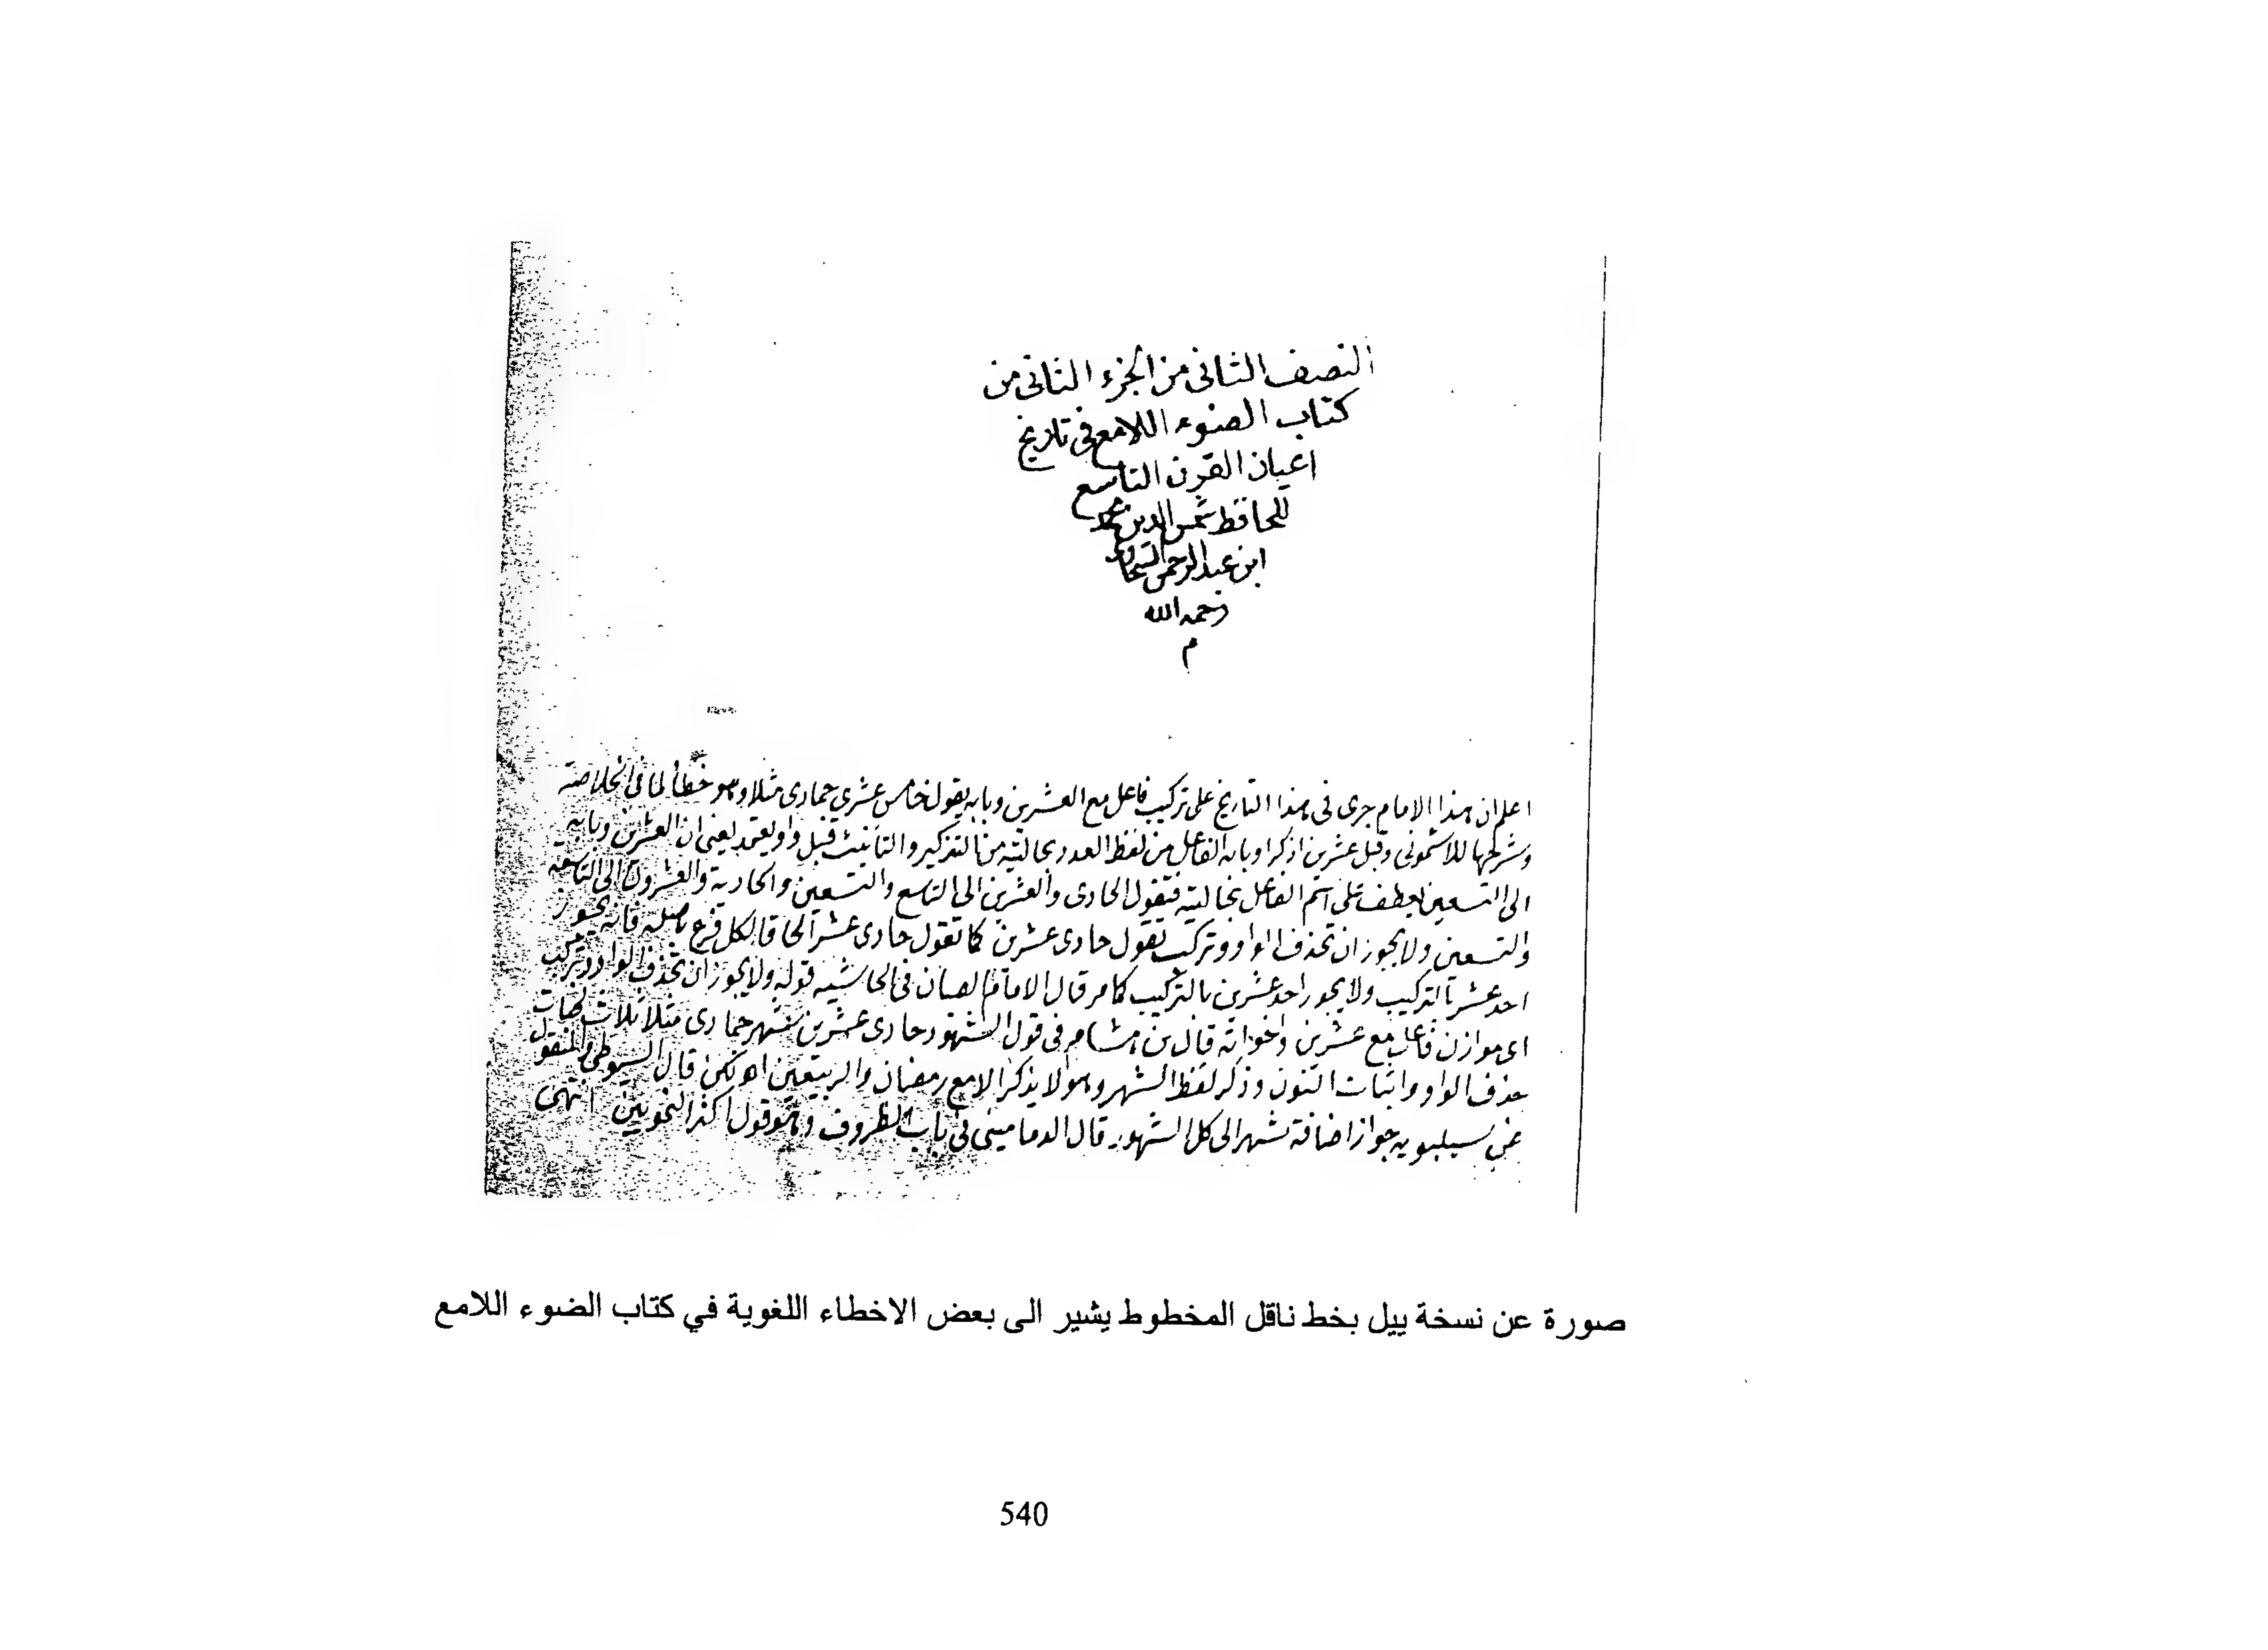 النصف الثانى من الجزء الثانى من
كتاب الضوء اللامع فى تاريخ
اعيان القرن التاسع
للحافظ شمس الدين محمد
ابن عبد الرحمن السخاوى
رحمه الله
م
اعلم ان هذا الامام جرى فى هذا التاريخ على تركيب فاعل مع العشرين وبابه يقول خامس عشرى جمادى مثلا وهو خطأ لما فى الخلاصة
وشرحها للاشمونى وقبل عشرين اذكرا وبابه الفاعل من لفظ العدد بحالتيه من التذكير والتأنيث قبل واو يعتمد يعنى ان العشرين وبابه
الى التسعين يعطف على اسم الفاعل بحالتيه فتقول الحادى والعشرين الى التاسع والتسعين والحادية والعشرون الى التاسعة
والتسعين ولا يجوز ان تحذف الواو وتركب تقول حادى عشرين كما تقول حادى عشر الحاقا لكل فرع باصله فانه يجوز
احد عشر بالتركيب ولا يجوز احد عشرين بالتركيب كما مر قال الامام الصبان فى الحاشيه قوله ولا يجوز ان تحذف الواو وتركب
اى موازن فاعل مع عشرين واخواته قال بن هشام فى قول الشهود حادى عشرين شهر جمادى مثلا ثلاث لحنات
حذف الواو واثبات النون وذكر لفظ الشهر وهو لا يذكر الا مع رمضان والربيعين اهـ لكن قال السيوطى والمنقول
عن سيبويه جواز اضافة شهر الى كل الشهور قال الدمامينى فى باب الظروف وهو قول اكثر النحويين انتهى
صورة عن نسخة ييل بخط ناقل المخطوط يشير الى بعض الاخطاء اللغوية في كتاب الضوء اللامع
540